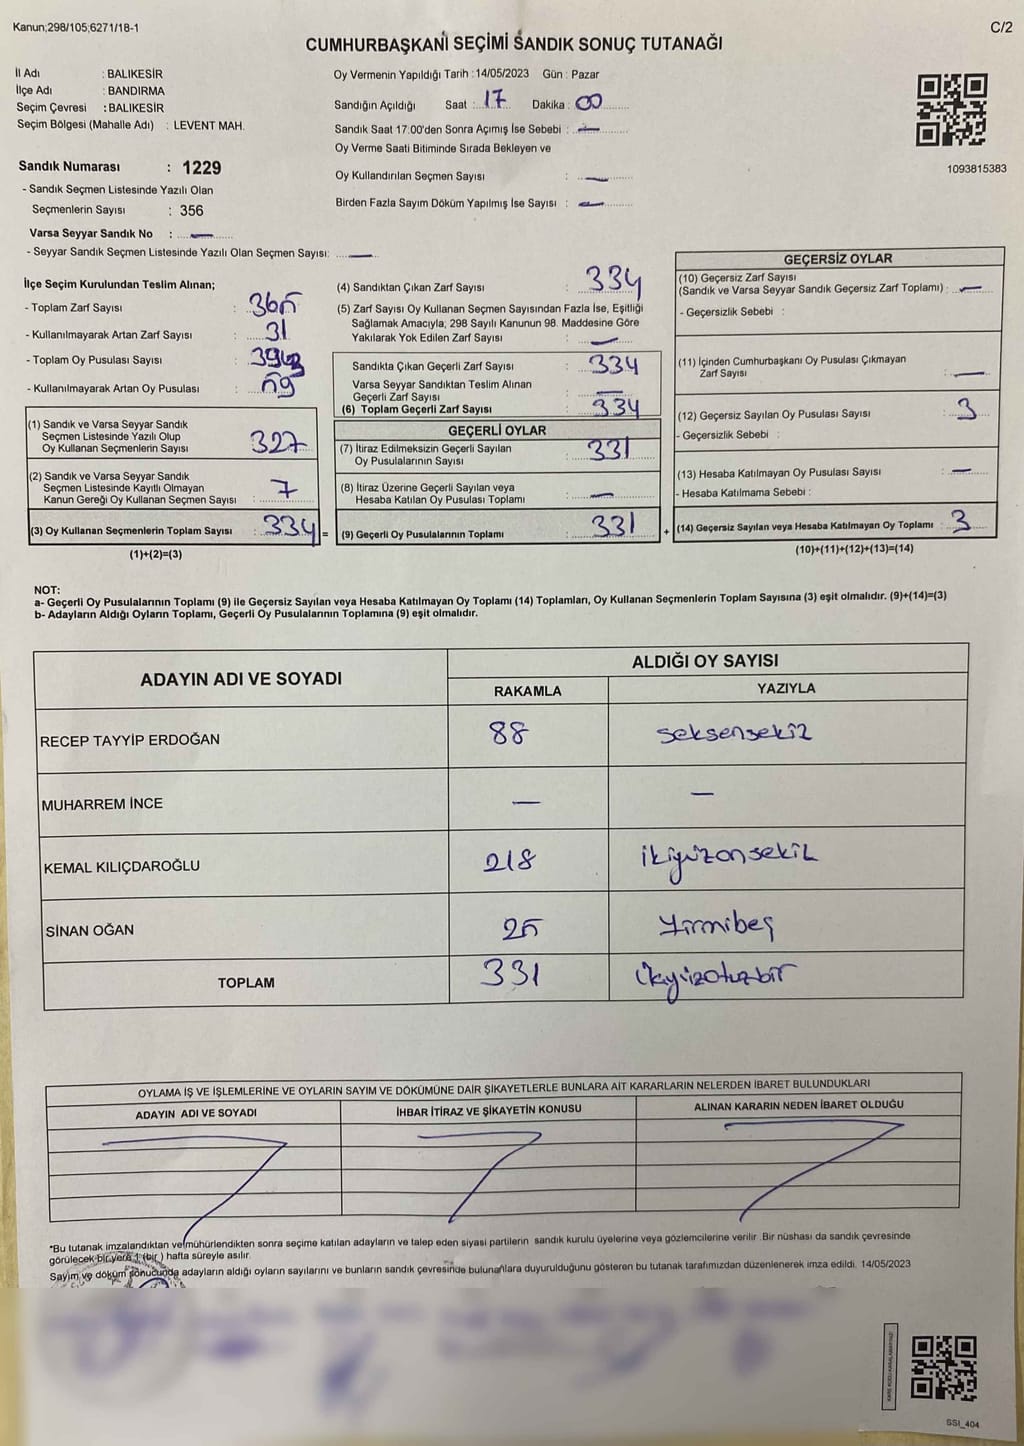 Kanun;298/105;6271/18-1
C/2
CUMHURBAŞKANİ SEÇİMİ SANDIK SONUÇ TUTANAĞI
İl Adı : BALIKESİR
İlçe Adı : BANDIRMA
Seçim Çevresi : BALIKESİR
Seçim Bölgesi (Mahalle Adı) : LEVENT MAH.
Sandık Numarası : 1229
- Sandık Seçmen Listesinde Yazılı Olan
Seçmenlerin Sayısı : 356
Varsa Seyyar Sandık No : —
- Seyyar Sandık Seçmen Listesinde Yazılı Olan Seçmen Sayısı: —
Oy Vermenin Yapıldığı Tarih : 14/05/2023 Gün : Pazar
Sandığın Açıldığı Saat : 17 Dakika : 00
Sandık Saat 17:00'den Sonra Açımış İse Sebebi : —
Oy Verme Saati Bitiminde Sırada Bekleyen ve
Oy Kullandırılan Seçmen Sayısı : —
Birden Fazla Sayım Döküm Yapılmış İse Sayısı : —
1093815383
İlçe Seçim Kurulundan Teslim Alınan;
- Toplam Zarf Sayısı : 365
- Kullanılmayarak Artan Zarf Sayısı : 31
- Toplam Oy Pusulası Sayısı :
- Kullanılmayarak Artan Oy Pusulası : 59
(1) Sandık ve Varsa Seyyar Sandık
Seçmen Listesinde Yazılı Olup
Oy Kullanan Seçmenlerin Sayısı 327
(2) Sandık ve Varsa Seyyar Sandık
Seçmen Listesinde Kayıtlı Olmayan
Kanun Gereği Oy Kullanan Seçmen Sayısı : 7
(3) Oy Kullanan Seçmenlerin Toplam Sayısı : 334 =
(1)+(2)=(3)
(4) Sandıktan Çıkan Zarf Sayısı : 334
(5) Zarf Sayısı Oy Kullanan Seçmen Sayısından Fazla İse, Eşitliği
Sağlamak Amacıyla; 298 Sayılı Kanunun 98. Maddesine Göre
Yakılarak Yok Edilen Zarf Sayısı : —
Sandıkta Çıkan Geçerli Zarf Sayısı : 334
Varsa Seyyar Sandıktan Teslim Alınan
Geçerli Zarf Sayısı : —
(6) Toplam Geçerli Zarf Sayısı : 334
GEÇERLİ OYLAR
(7) İtiraz Edilmeksizin Geçerli Sayılan
Oy Pusulalarının Sayısı : 331
(8) İtiraz Üzerine Geçerli Sayılan veya
Hesaba Katılan Oy Pusulası Toplamı : —
(9) Geçerli Oy Pusulalarının Toplamı : 331 +
GEÇERSİZ OYLAR
(10) Geçersiz Zarf Sayısı
(Sandık ve Varsa Seyyar Sandık Geçersiz Zarf Toplamı) : —
- Geçersizlik Sebebi :
(11) İçinden Cumhurbaşkanı Oy Pusulası Çıkmayan
Zarf Sayısı : —
(12) Geçersiz Sayılan Oy Pusulası Sayısı : 3
- Geçersizlik Sebebi :
(13) Hesaba Katılmayan Oy Pusulası Sayısı : —
- Hesaba Katılmama Sebebi :
(14) Geçersiz Sayılan veya Hesaba Katılmayan Oy Toplamı : 3
(10)+(11)+(12)+(13)=(14)
NOT:
a- Geçerli Oy Pusulalarının Toplamı (9) ile Geçersiz Sayılan veya Hesaba Katılmayan Oy Toplamı (14) Toplamları, Oy Kullanan Seçmenlerin Toplam Sayısına (3) eşit olmalıdır. (9)+(14)=(3)
b- Adayların Aldığı Oyların Toplamı, Geçerli Oy Pusulalarının Toplamına (9) eşit olmalıdır.
ADAYIN ADI VE SOYADI ALDIĞI OY SAYISI
RAKAMLA YAZIYLA
RECEP TAYYİP ERDOĞAN 88 seksensekiz
MUHARREM İNCE — —
KEMAL KILIÇDAROĞLU 218 ikiyüzonsekiz
SİNAN OĞAN 25 Yirmibeş
TOPLAM 331 üçyüzotuzbir
OYLAMA İŞ VE İŞLEMLERİNE VE OYLARIN SAYIM VE DÖKÜMÜNE DAİR ŞİKAYETLERLE BUNLARA AİT KARARLARIN NELERDEN İBARET BULUNDUKLARI
ADAYIN ADI VE SOYADI İHBAR İTİRAZ VE ŞİKAYETİN KONUSU ALINAN KARARIN NEDEN İBARET OLDUĞU
*Bu tutanak imzalandıktan ve mühürlendikten sonra seçime katılan adayların ve talep eden siyasi partilerin sandık kurulu üyelerine veya gözlemcilerine verilir. Bir nüshası da sandık çevresinde
görülecek bir yere 1 (bir ) hafta süreyle asılır.
Sayım ve döküm sonucunda adayların aldığı oyların sayılarını ve bunların sandık çevresinde bulunanlara duyurulduğunu gösteren bu tutanak tarafımızdan düzenlenerek imza edildi. 14/05/2023
SSI_404